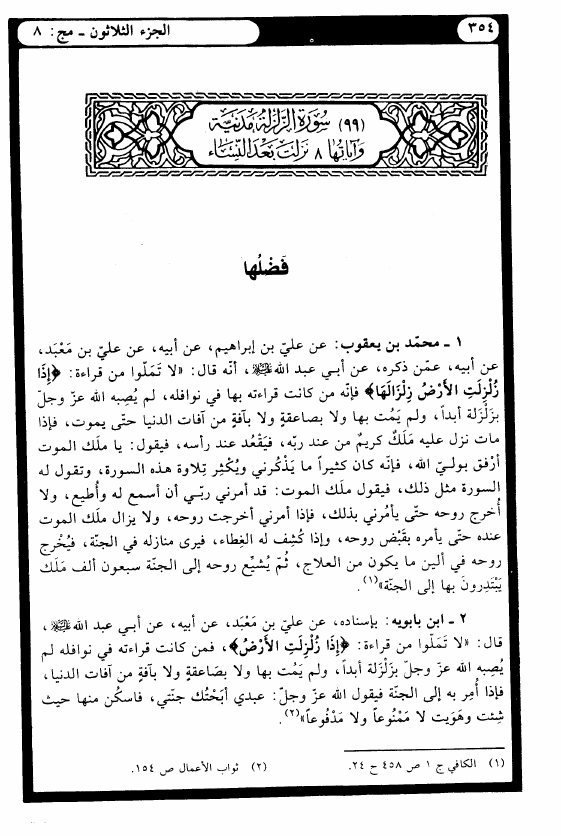 ٣٥٤
الجزء الثلاثون ـ مج: ٨
(٩٩) سورة الزلزلة مدنية
وآياتها ٨ نزلت بعد النساء
فَضلُها
١ ـ محمّد بن يعقوب: عن عليّ بن إبراهيم، عن أبيه، عن عليّ بن مَعْبَد،
عن أبيه، عمّن ذكره، عن أبي عبد الله عليه السلام، أنّه قال: «لا تَمَلّوا من قراءة: ﴿إِذَا
زُلْزِلَتِ الأَرْضُ زِلْزَالَهَا﴾ فإنّه من كانت قراءته بها في نوافله، لم يُصِبه الله عزّ وجلّ
بزَلْزَلة أبداً، ولم يَمُت بها ولا بصاعقةٍ ولا بآفةٍ من آفات الدنيا حتّى يموت، فإذا
مات نزل عليه مَلَكٌ كريمٌ من عند ربّه، فيَقْعُد عند رأسه، فيقول: يا ملَك الموت
أرْفق بوليّ الله، فإنّه كان كثيراً ما يَذْكُرني ويُكْثِر تِلاوة هذه السورة، وتقول له
السورة مثل ذلك، فيقول ملَك الموت: قد أمرني ربّي أن أسمع له وأُطيع، ولا
أُخرج روحه حتّى يأمُرني بذلك، فإذا أمرني أخرجت روحه، ولا يزال ملَك الموت
عنده حتّى يأمره بقَبْض روحه، وإذا كُشِف له الغِطاء، فيرى منازله في الجنّة، فيُخْرِج
روحه في ألين ما يكون من العلاج، ثُمّ يُشيِّع روحه إلى الجنّة سبعون ألف مَلَك
يَبْتَدِرون بها إلى الجنّة»(١).
٢ ـ ابن بابويه: بإسناده، عن عليّ بن مَعْبَد، عن أبيه، عن أبي عبد الله عليه السلام،
قال: «لا تَمَلّوا من قراءة: ﴿إِذَا زُلْزِلَتِ الأَرْضُ﴾، فمن كانت قراءته في نوافله لم
يُصِبه الله عزّ وجلّ بزَلْزَلة أبداً، ولم يَمُت بها ولا بصَاعقةٍ ولا بآفةٍ من آفات الدنيا،
فإذا أُمِر به إلى الجنّة فيقول الله عزّ وجلّ: عبدي أبَحْتُك جنّتي، فاسكُن منها حيث
شِئت وهَوَيت لا مَمْنُوعاً ولا مَدْفُوعاً»(٢).
(١) الكافي ج ١ ص ٤٥٨ ح ٢٤.
(٢) ثواب الأعمال ص ١٥٤.